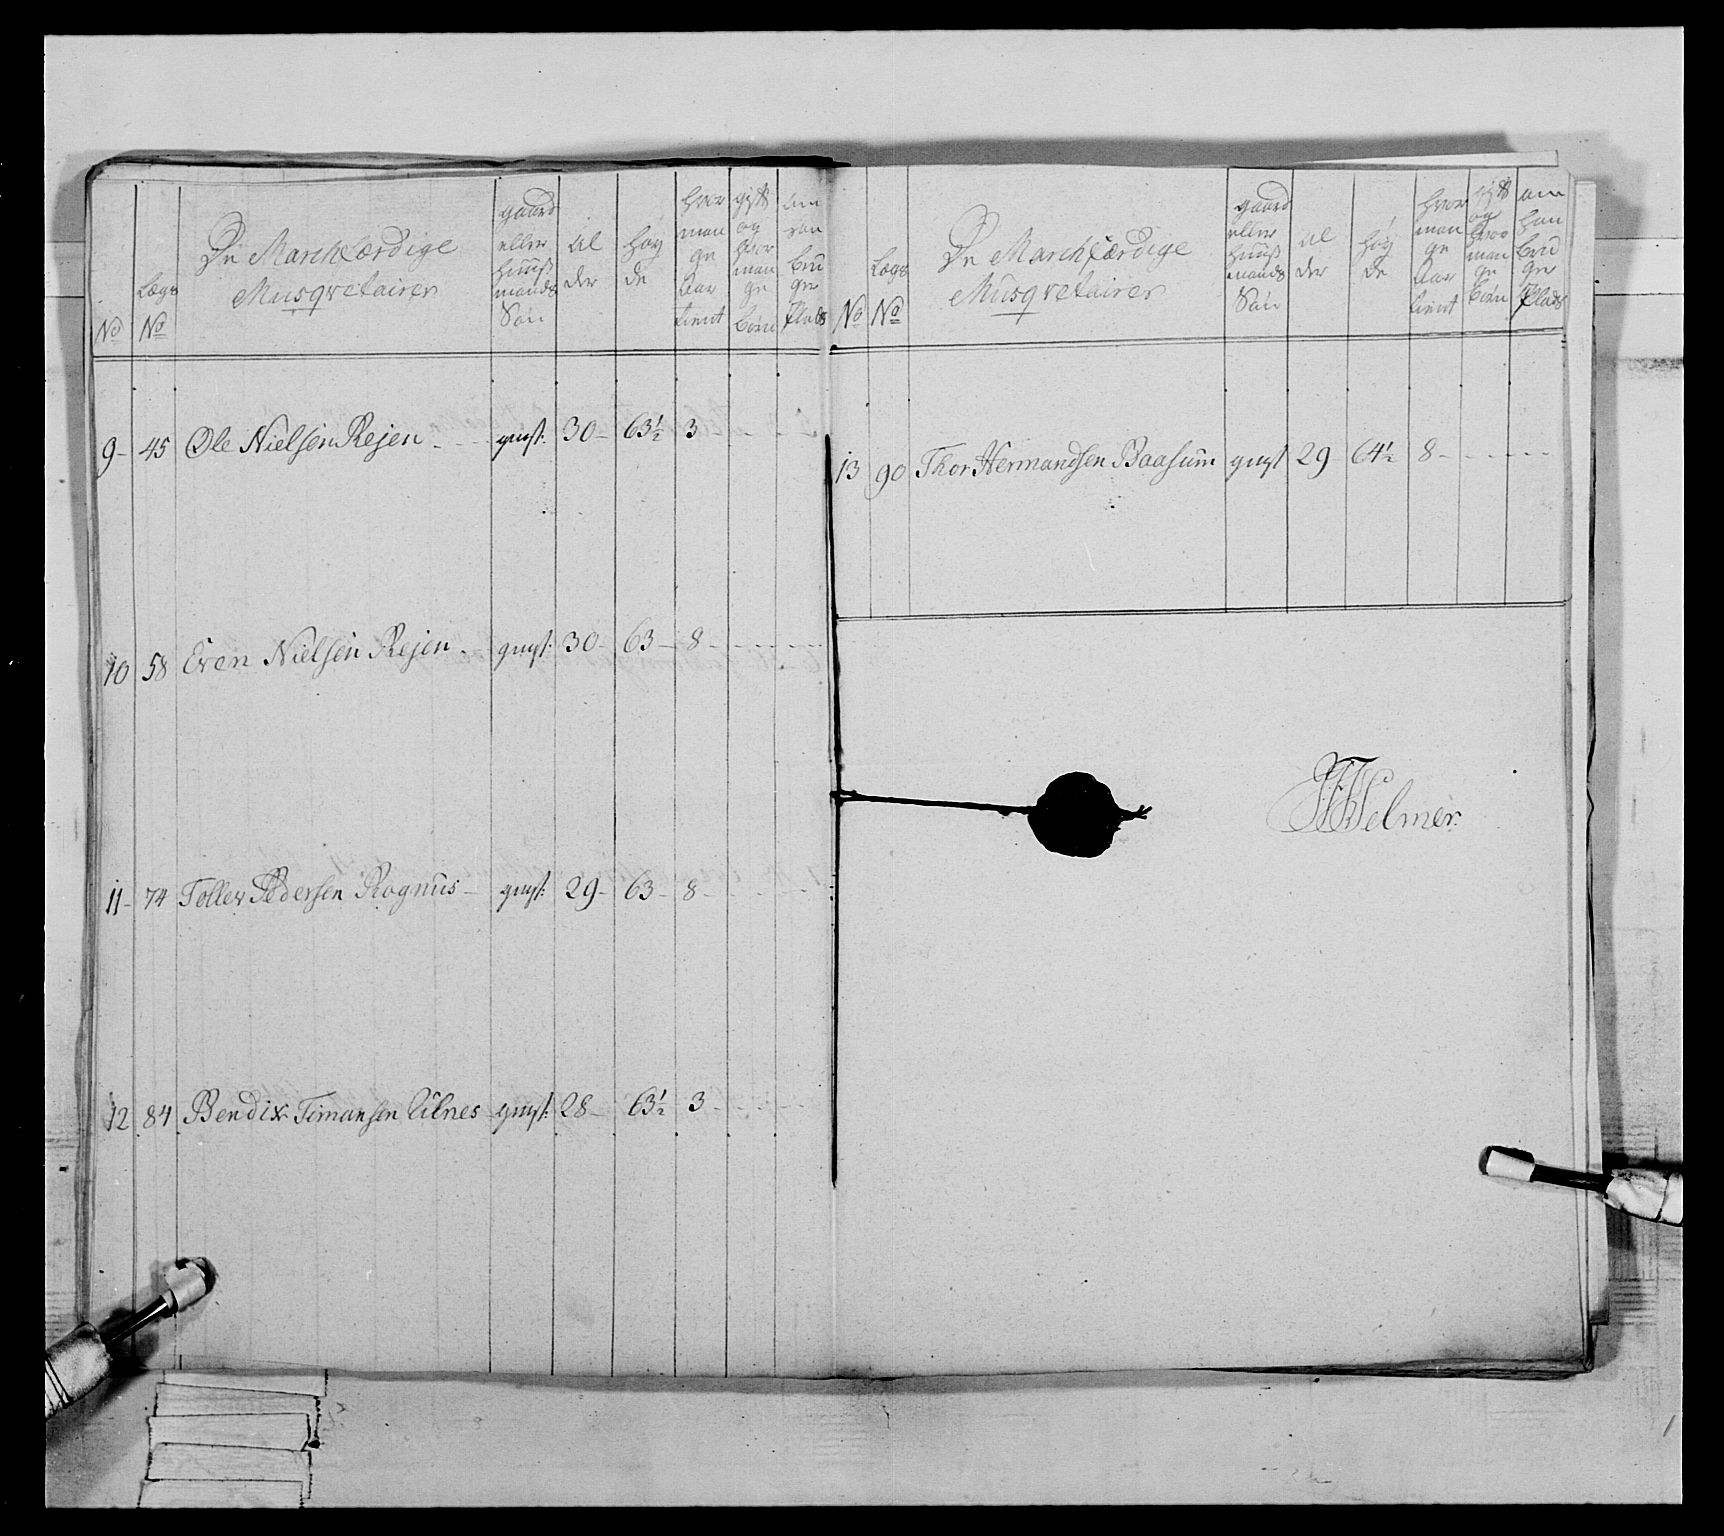 No
Lægs No
De Marchfærdige Musqvetairer
gaard eller huuss mands Søn
al der
høy de
hvor man ge Aar tient
gift og hvor man ge börn
om han bru ger Plads
9- 45 Ole Nielsen Rejen - - gmst: 30- 63½ 3 - -
10 58 Even Nielsen Rejen - gmst: 30- 63- 8 - - - - -
11- 74 Toller Pedersen Rognus- gmst: 29- 63- 8- - - -
12 84 Bendix Timansen Ulnes gmst: 28- 63½ 3 - - - -
No
Lægs No
De Marchfærdige Musqvetairer
gaard eller huuss mands Søn
al der
høy de
hvor man ge Aar tient
gift og hvor man ge börn
om han bru ger Plads
13 90 Thor Hermandsen Baasum gmst 29 64½ 8- - - - - -
Welmer.